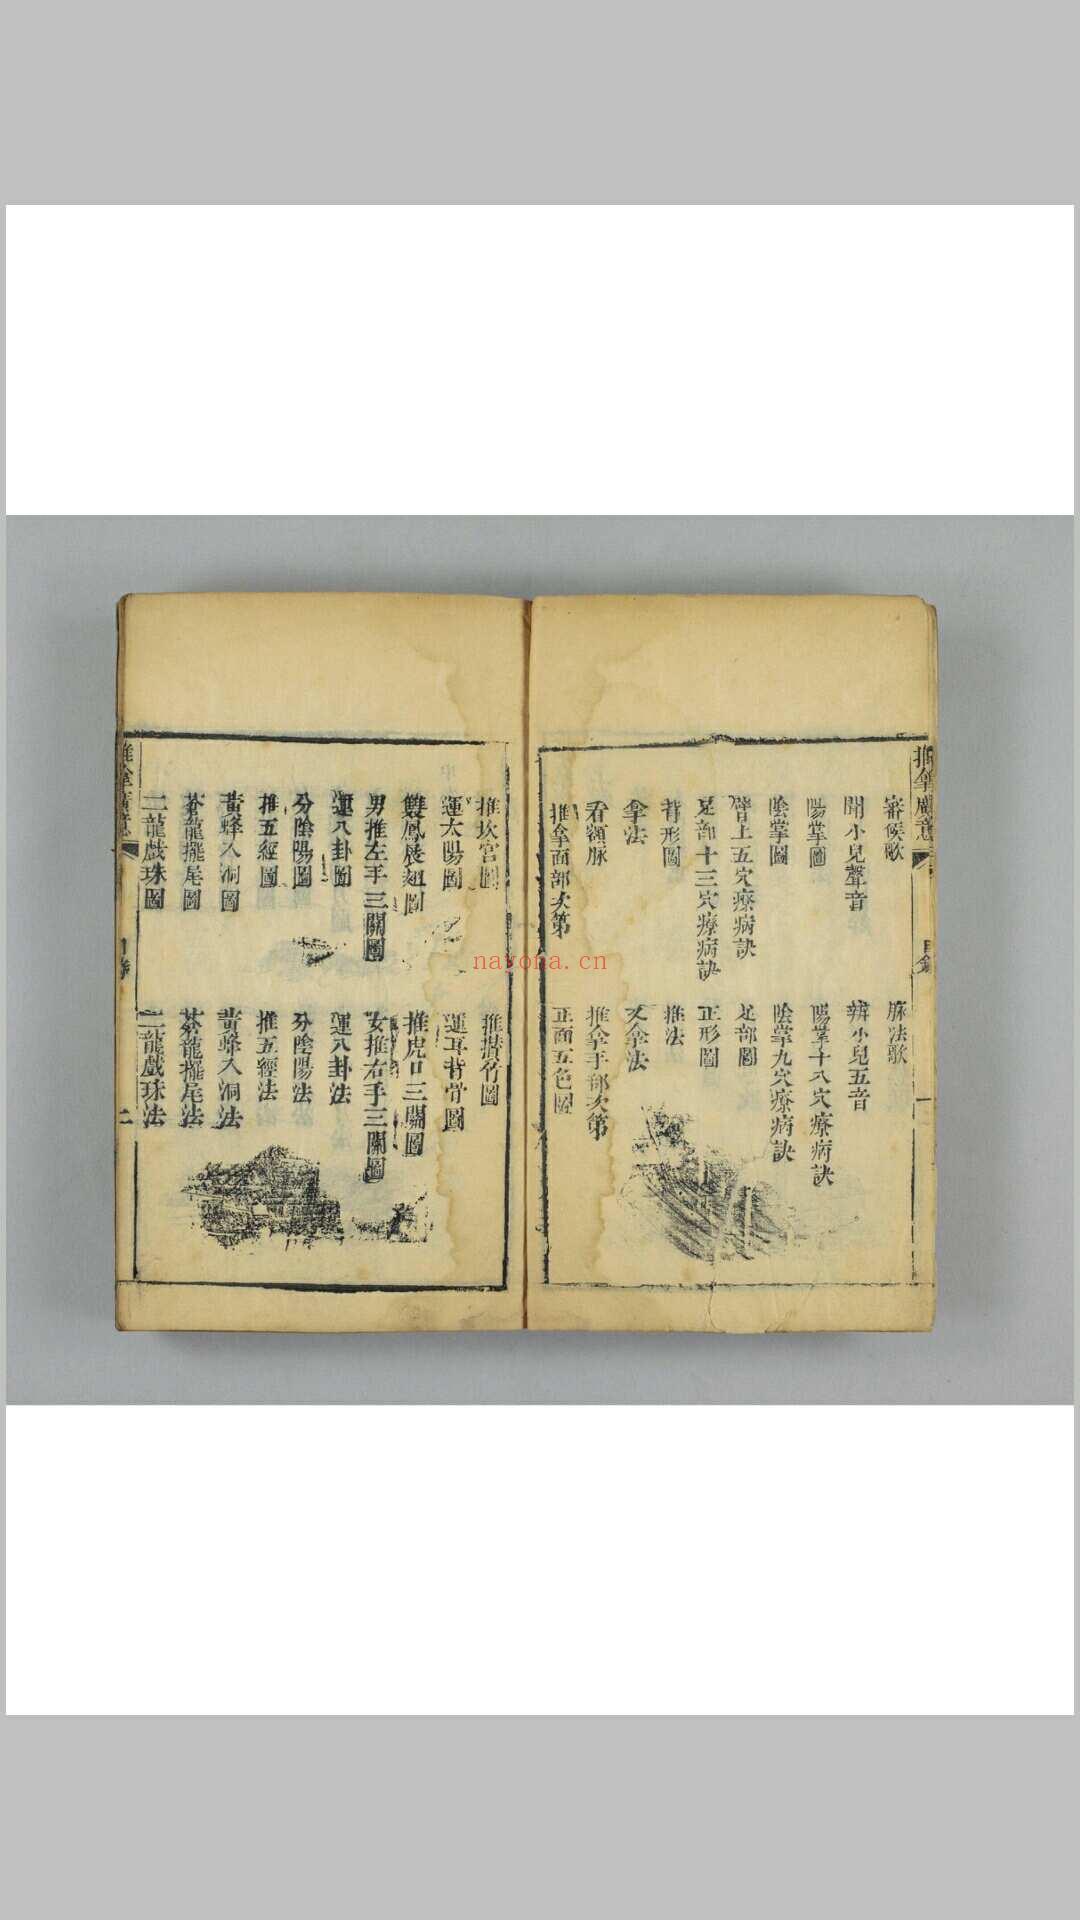 推拿廣意
目錄
一
審候歌
脉法歌
聞小兒聲音
辨小兒五音
陽掌圖
陽掌十八穴療病訣
陰掌圖
陰掌九穴療病訣
臂上五穴療病訣
足部圖
足部十三穴療病訣
正形圖
背形圖
推法
拿法
又拿法
看額脉
推拿手部次第
推拿面部次第
正面五色圖
推坎宮圖
推攅竹圖
運太陽圖
運耳背骨圖
雙鳳展翅圖
推虎口三關圖
男推左手三關圖
女推右手三關圖
運八卦圖
運八卦法
分陰陽圖
分陰陽法
推五經圖
推五經法
黃蜂入洞圖
黃蜂入洞法
蒼龍擺尾圖
蒼龍擺尾法
二龍戲珠圖
二龍戲珠法
推拿廣意
二
nayona.cn